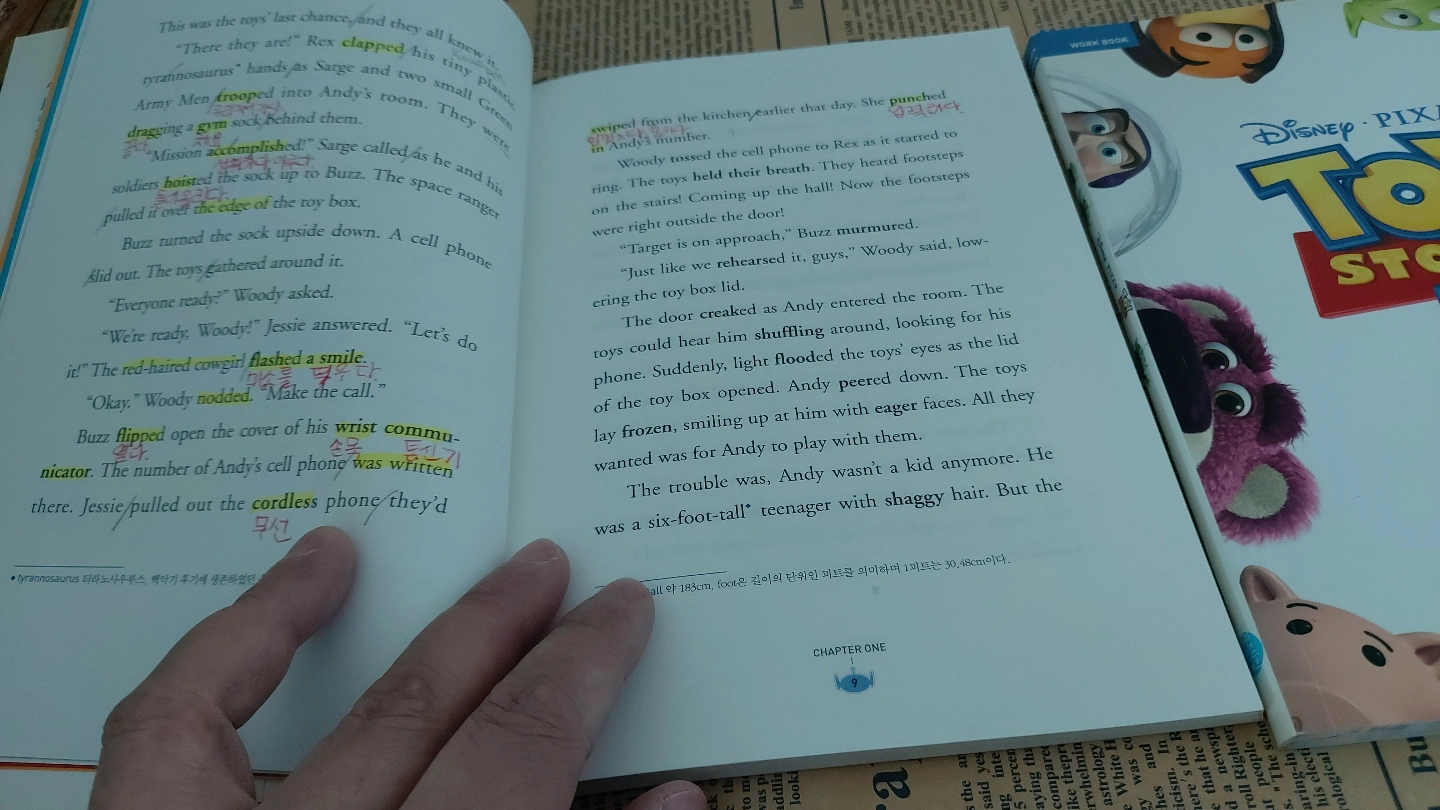 This was the toys' last chance, and they all knew it.
"There they are!" Rex clapped his tiny plastic
tyrannosaurus* hands as Sarge and two small Green
Army Men trooped into Andy's room. They were
dragging a gym sock behind them.
끌다
"Mission accomplished!" Sarge called as he and his
soldiers hoisted the sock up to Buzz. The space ranger
들어올리다
pulled it over the edge of the toy box.
Buzz turned the sock upside down. A cell phone
slid out. The toys gathered around it.
"Everyone ready?" Woody asked.
"We're ready, Woody!" Jessie answered. "Let's do
it!" The red-haired cowgirl flashed a smile.
미소를 띄우다
"Okay." Woody nodded. "Make the call."
Buzz flipped open the cover of his wrist commu-
열다 손목 통신기
nicator. The number of Andy's cell phone was written
there. Jessie pulled out the cordless phone they'd
무선
* tyrannosaurus 티라노사우루스. 백악기 후기에 생존하였던
swiped from the kitchen earlier that day. She punched
입력하다
in Andy's number.
Woody tossed the cell phone to Rex as it started to
ring. The toys held their breath. They heard footsteps
on the stairs! Coming up the hall! Now the footsteps
were right outside the door!
"Target is on approach," Buzz murmured.
"Just like we rehearsed it, guys," Woody said, low-
ering the toy box lid.
The door creaked as Andy entered the room. The
toys could hear him shuffling around, looking for his
phone. Suddenly, light flooded the toys' eyes as the lid
of the toy box opened. Andy peered down. The toys
lay frozen, smiling up at him with eager faces. All they
wanted was for Andy to play with them.
The trouble was, Andy wasn't a kid anymore. He
was a six-foot-tall* teenager with shaggy hair. But the
all 약 183cm, foot은 길이의 단위인 피트를 의미하며 1피트는 30.48cm이다.
CHAPTER ONE
9
WORK BOOK
DISNEY · PIX
TOY
STO